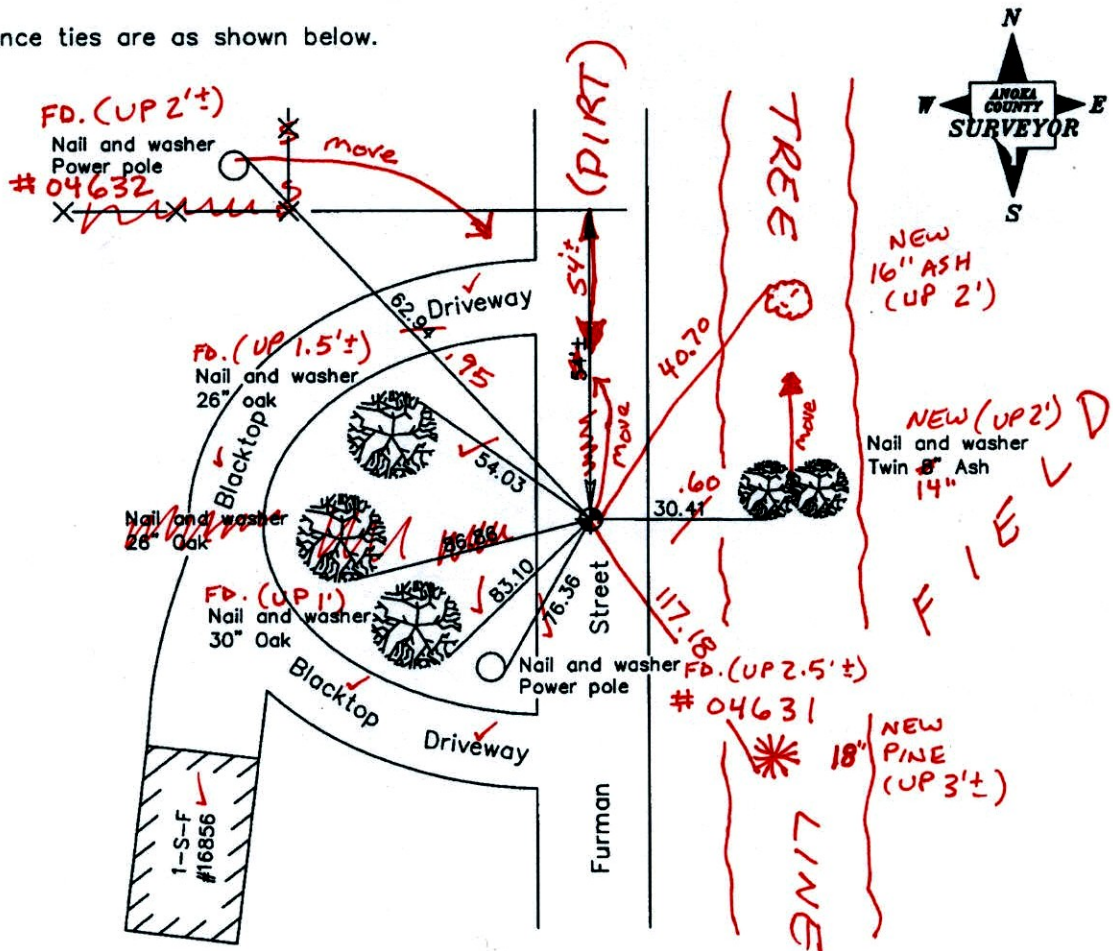 nce ties are as shown below.
N
ANOKA
COUNTY
W E
SURVEYOR
S
FD. (UP 2'±)
Nail and washer
Power pole
# 04632
S
S
move
(DIRT)
TREE
NEW
16" ASH
(UP 2')
Driveway
62.94
.95
54'±
54'±
40.70
FD. (UP 1.5'±)
Nail and washer
26" oak
Blacktop
54.03
move
move
NEW (UP 2')
Nail and washer
Twin 8" Ash
14"
FIELD
.60
30.41
Nail and washer
26" Oak
86.86
FD. (UP 1')
Nail and washer
30" Oak
83.10
76.36
Street
117.18
Nail and washer
Power pole
FD. (UP 2.5'±)
# 04631
Blacktop
Driveway
18"
NEW
PINE
(UP 3'±)
1-S-F
#16856
Furman
LINE